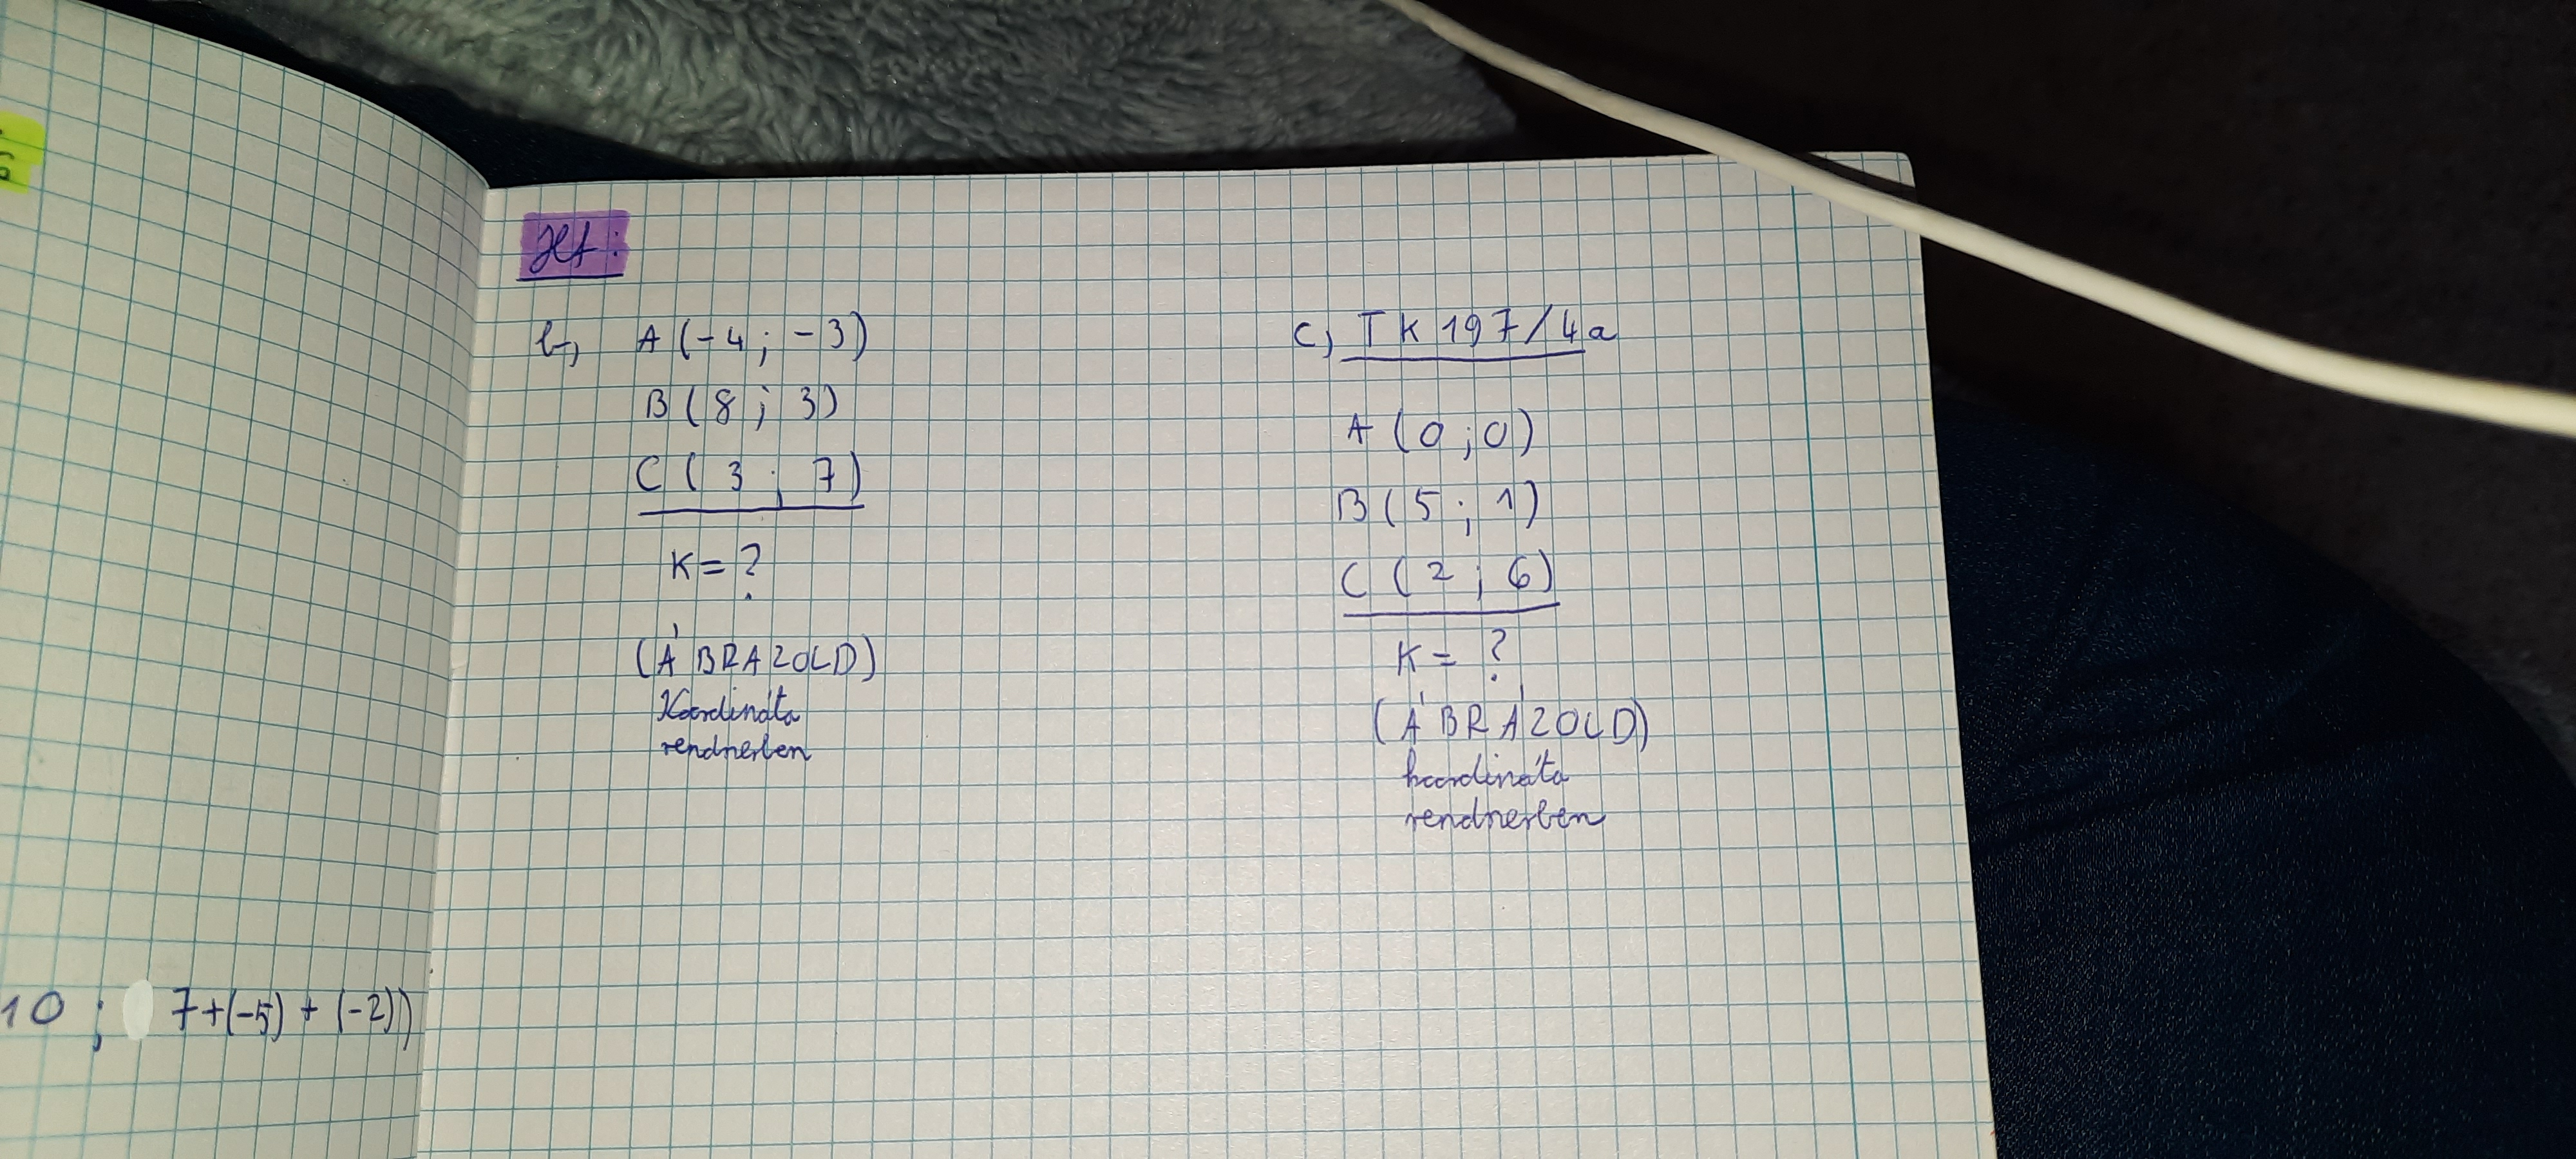 Hf:
b, A (-4 ; -3)
B ( 8 ; 3)
C ( 3 ; 7)
K = ?
(ÁBRAZOLD)
Koordináta
rendnerben
c, TK 197/4a
A (0 ; 0)
B ( 5 ; 1)
C ( 2 ; 6)
K = ?
(ÁBRÁZOLD)
koordináta
rendnerben
10 ; 7+(-5) + (-2))